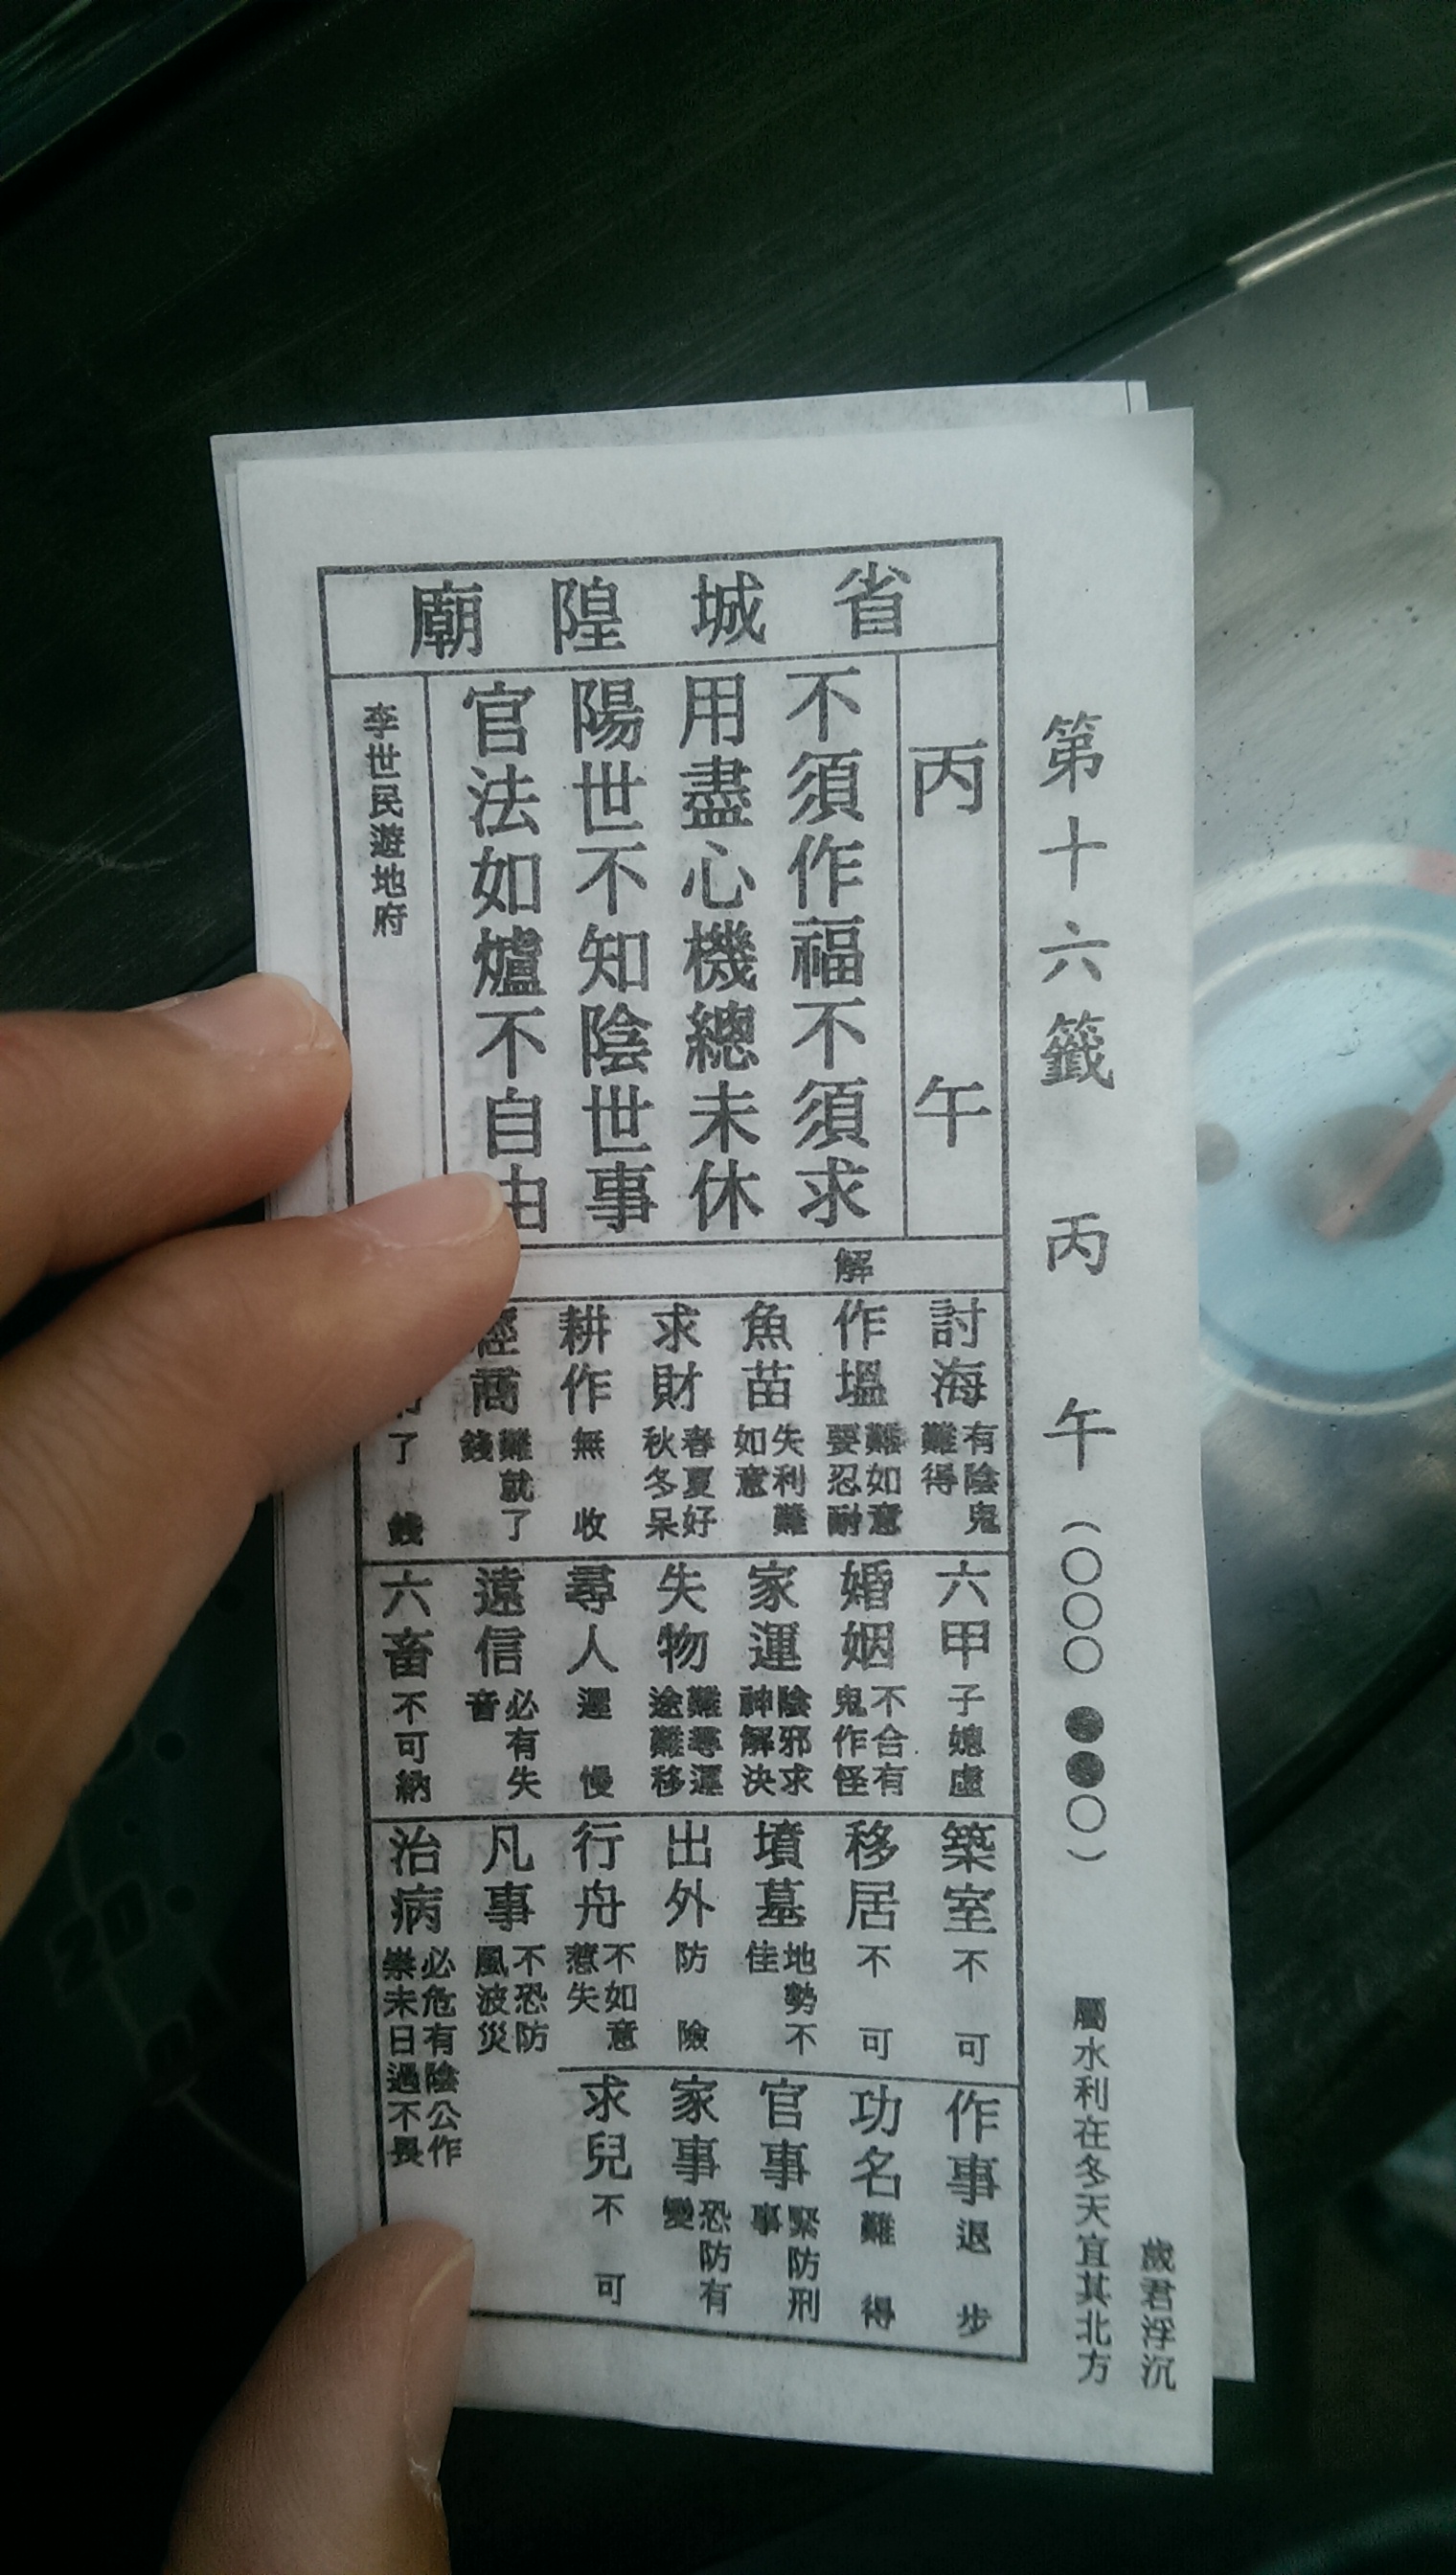 第十六籤 丙 午 (○○○●●○) 屬水利在冬天宜其北方
歲君浮沉
省城隍廟
丙 午
不須作福不須求
用盡心機總未休
陽世不知陰世事
官法如爐不自由
李世民遊地府
解
討海 有陰鬼難得
作塭 難如意要忍耐
魚苗 失利難如意
求財 春夏好秋冬呆
耕作 無收
經商 難就了錢
了錢
六甲 子媳虛
婚姻 不合有鬼作怪
家運 陰邪求神解決
失物 難尋運途難移
尋人 遲慢
遠信 必有失音
六畜 不可納
築室 不可
移居 不可
墳墓 地勢不佳
出外 防險
行舟 不如意惹失
凡事 不恐防風波災
治病 必危有陰公作祟未日過不畏
作事 退步
功名 難得
官事 緊防刑事
家事 恐防有變
求兒 不可